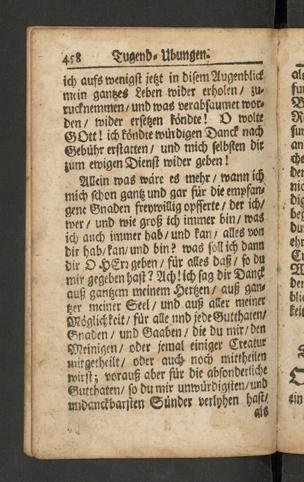 458 Tugend-Ubungen.
ich aufs wenigst jetzt in disem Augenblick
mein gantzes Leben wider erholen / zu-
rucknemmen / und was verabsaumet wor-
den / wider ersetzen köndte! O wolte
GOtt! ich köndte würdigen Danck nach
Gebühr erstatten / und mich selbsten dir
zum ewigen Dienst wider geben!
Allein was wäre es mehr / wann ich
mich schon gantz und gar für die empfan-
gene Gnaden freywillig opfferte / der ich /
wer / und wie groß ich immer bin / was
ich auch immer hab / und kan / alles von
dir hab / kan / und bin? was soll ich dann
dir O HErr geben / für alles daß / so du
mir gegeben hast? Ach! ich sag dir Danck
auß gantzem meinem Hertzen / auß gan-
tzer meiner Seel / und auß aller meiner
Möglichkeit / für alle und jede Gutthaten /
Gnaden / und Gaaben / die du mir / den
Meinigen / oder jemal einiger Creatur
mitgetheilt / oder auch noch mittheilen
wirst; vorauß aber für die absonderliche
Gutthaten / so du mir unwürdigsten / und
undanckbarsten Sünder verlyhen hast /
als